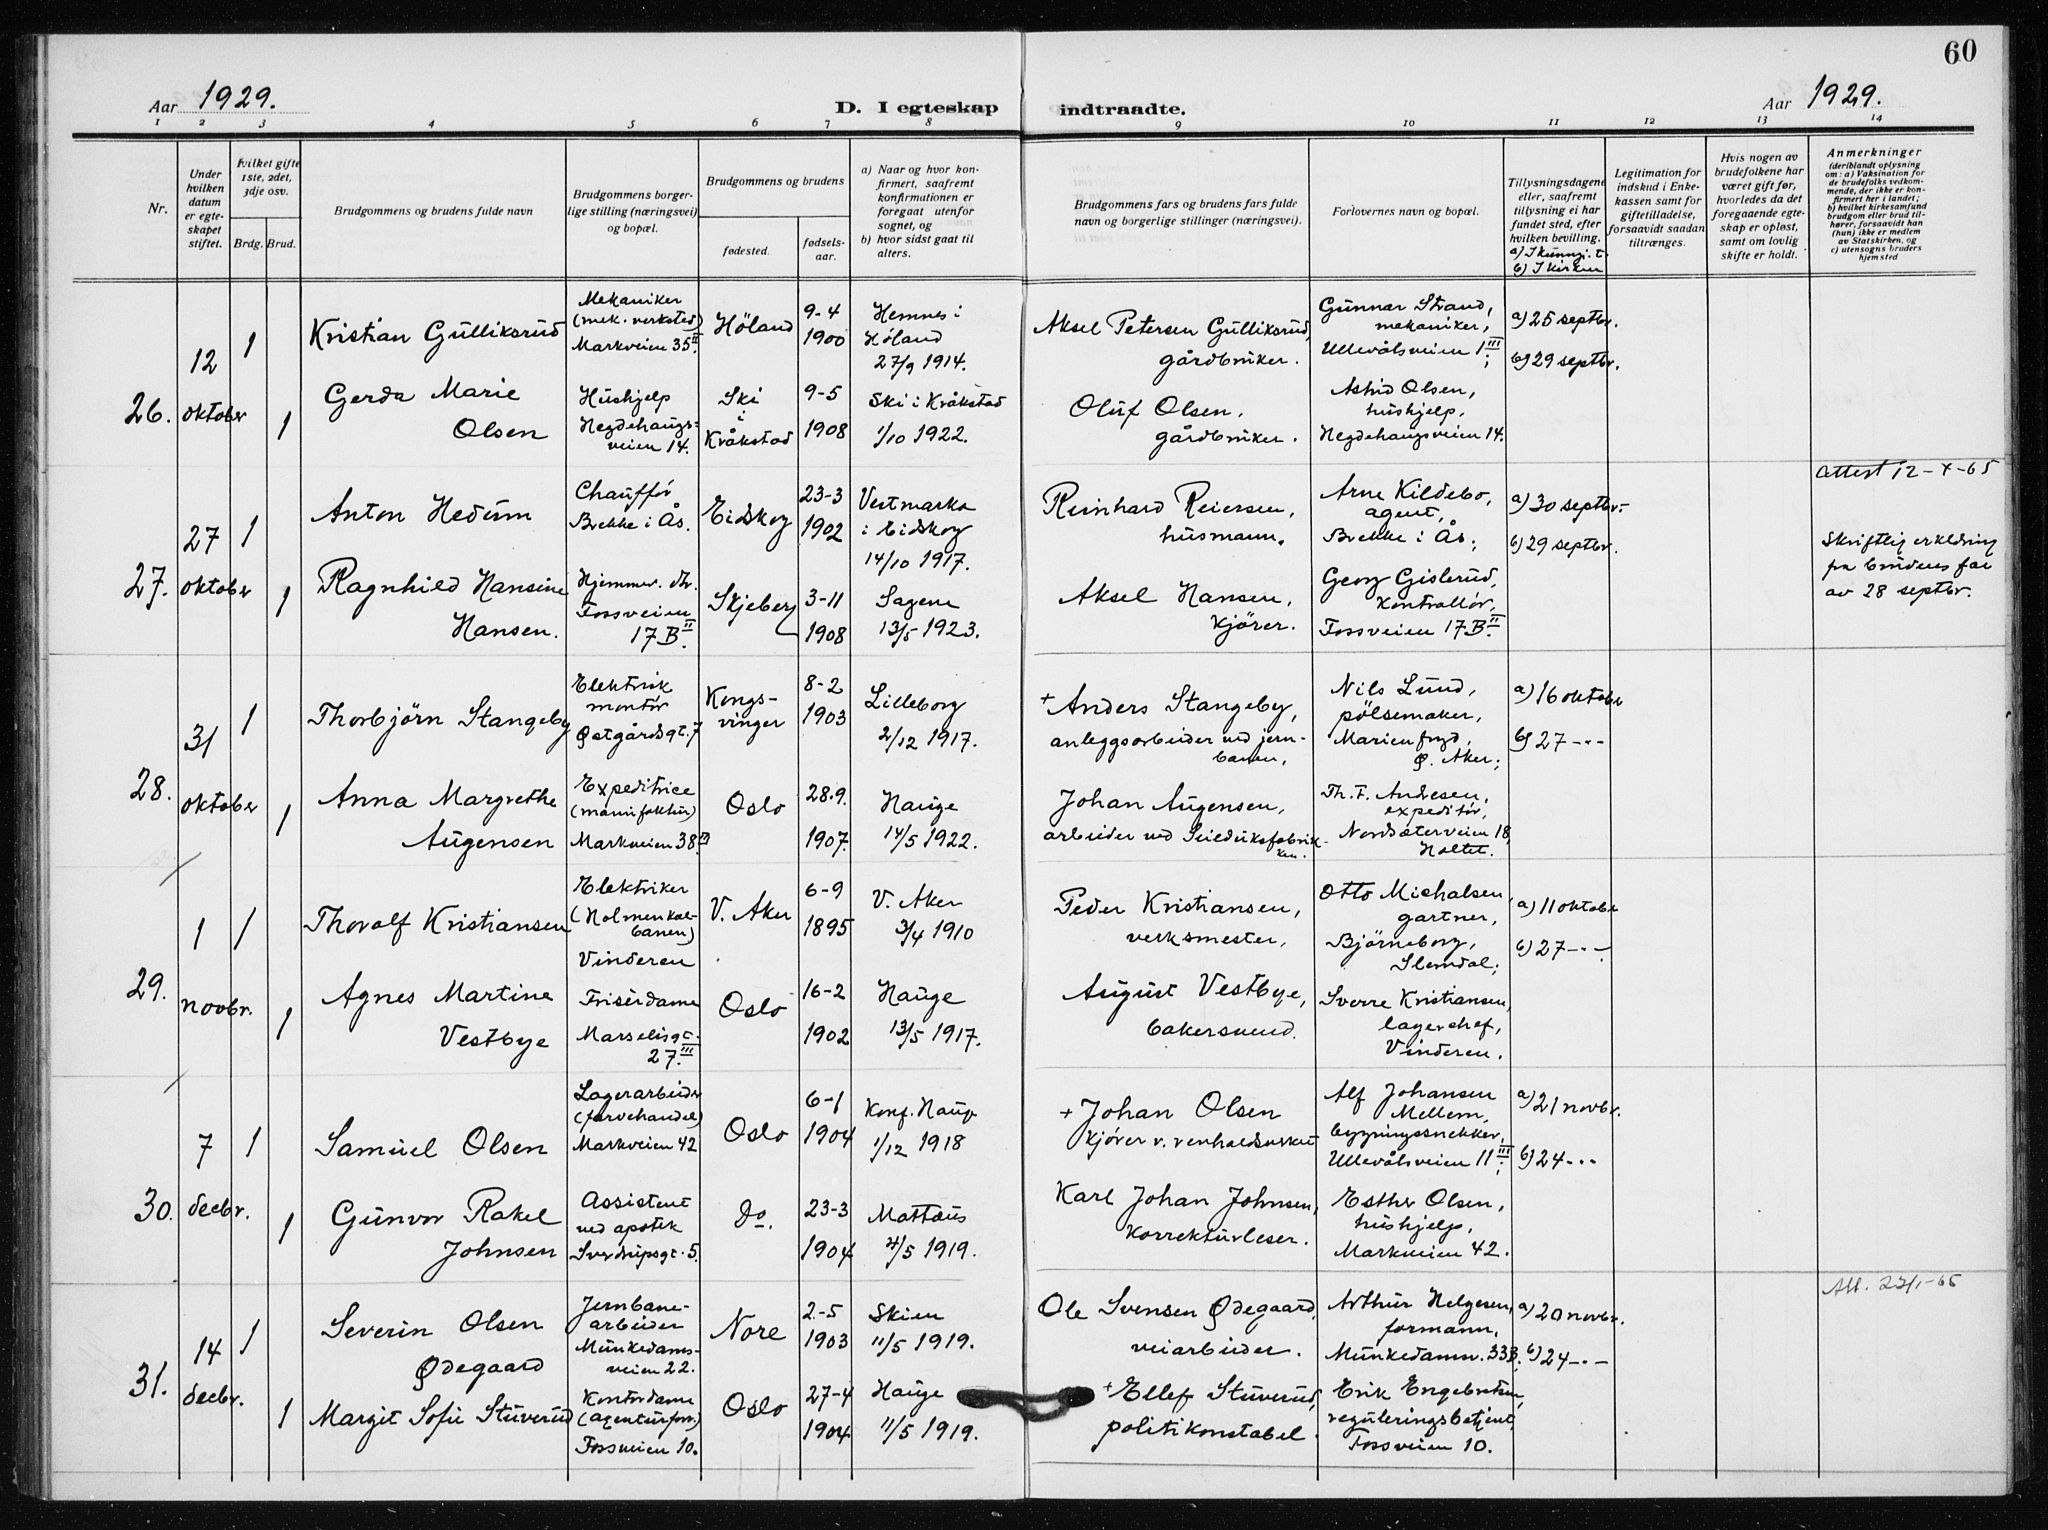 60
Aar 1929.
D. I egteskap indtraadte.
Aar 1929.
1 2 3 4 5 6 7 8 9 10 11 12 13 14
Nr.
Under
hvilken
datum
er egte-
skapet
stiftet.
hvilket gifte
1ste, 2det,
3dje osv.
Brdg. Brud.
Brudgommens og brudens fulde navn
Brudgommens borger-
lige stilling (næringsvei)
og bopæl.
Brudgommens og brudens
fødested.
fødsels-
aar.
a) Naar og hvor kon-
firmert, saafremt
konfirmationen er
foregaat utenfor
sognet, og
b) hvor sidst gaat til
alters.
Brudgommens fars og brudens fars fulde
navn og borgerlige stillinger (næringsvei).
Forlovernes navn og bopæl.
Tillysningsdagene
eller, saafremt
tillysning ei har
fundet sted, efter
hvilken bevilling.
a) I kunngj. t.
b) I kirken
Legitimation for
indskud i Enke-
kassen samt for
giftetilladelse,
forsaavidt saadan
tiltrænges.
Hvis nogen av
brudefolkene har
været gift før,
hvorledes da det
foregaaende egte-
skap er opløst,
samt om lovlig
skifte er holdt.
Anmerkninger
(deriblandt oplysning
om: a) Vaksination for
de brudefolks vedkom-
mende, der ikke er kon-
firmert her i landet;
b) hvilket kirkesamfund
brudgom eller brud til-
hører, forsaavidt han
(hun) ikke er medlem
av Statskirken, og
c) utensogns bruders
hjemsted
26.
12
oktober
1
Kristian Gulliksrud
Mekaniker
(mek. verksted)
Markveien 35 II.
Höland
9-4
1900
Hemnes i
Höland
27/9 1914.
Aksel Petersen Gulliksrud,
gårdbruker.
Gunnar Strand,
mekaniker,
Ullevålsveien 1 III;
a) 25 septbr.
b) 29 septbr.
1
Gerda Marie
Olsen
Hushjelp
Hegdehaugs-
veien 14.
Ski
i
Kråkstad
9-5
1908
Ski i Kråkstad
1/10 1922.
Oluf Olsen,
gårdbruker.
Astrid Olsen,
hushjelp,
Hegdehaugsveien 14.
27.
27
oktober
1
Anton Hedum
Chaufför
Brekke i Ås.
Eidskog
23-3
1902
Vestmarka
i Eidskog
14/10 1917.
Reinhard Reiersen,
husmann.
Arne Kildebo,
agent,
Brekke i Ås;
a) 30 septbr.
b) 29 septbr.
Attest 12-X-65
Skriftlig erklæring
fra brudens far
av 28 septbr.
1
Ragnhild Hansine
Hansen.
Hjemmev. dtr.
Fossveien
17 B II.
Skjeberg
3-11
1908
Sagene
13/5 1923.
Aksel Hansen,
kjörer.
Georg Gislerud,
kontrollör,
Fossveien 17 B II.
28.
31
oktober
1
Thorbjörn Stangeby
Elektrisk
montör
Østgårdsgt. 7
Kongs-
vinger
8-2
1903
Lilleborg
2/12 1917.
+ Anders Stangeby,
anleggsarbeider ved jern-
banen,
Nils Lund,
pölsemaker,
Marienfryd,
Ø. Aker;
a) 16 oktober
b) 27 -"-
1
Anna Margrethe
Augensen
Expeditrice
(manufaktur)
Markveien 38 III
Oslo
28-9.
1907.
Hauge
14/5 1922.
Johan Augensen,
arbeider ved Seilduksfabrik-
ken.
Th. F. Andresen,
expeditör,
Nordseterveien 18,
Holtet.
29.
1
novbr.
1
Thoralf Kristiansen
Elektriker
(Holmenkol-
banen)
Vinderen
V. Aker
6-9
1895
V. Aker
3/4 1910
Peder Kristiansen,
verksmester,
Otto Michalsen,
gartner,
Björneborg,
Slemdal;
a) 11 oktober
b) 27 -"-
1
Agnes Martine
Vestbye
Frisördame
Marselisgt.
27. III
Oslo
16-2
1902
Hauge
13/5 1917.
August Vestbye,
bakersvend.
Sverre Kristiansen,
lagerchef,
Vinderen.
30.
7
decbr.
1
Samuel Olsen
Lagerarbeider
(farvehandel)
Markveien 42
Oslo
6-1
1904
Konf. Hauge
1/12 1918
+ Johan Olsen
kjörer v. renholdsverket
Alf Johansen
Mellem,
bygningssnekker,
Ullevålsveien 11 III;
a) 21 novbr.
b) 24 -"-
1
Gunvor Rakel
Johnsen
Assistent
ved apotek
Sverdrupsgt. 5.
Do.
23-3
1904
Mattæus
4/5 1919.
Karl Johan Johnsen,
korrekturleser.
Esther Olsen,
hushjelp,
Markveien 42.
31.
14
decbr.
1
Severin Olsen
Ødegaard
Jernbane-
arbeider
Munkedams-
veien 22.
Nore
2-5
1903
Skien
11/5 1919.
Ole Svensen Ødegaard,
veiarbeider.
Arthur Helgesen,
formann,
Munkedamsv. 33B,
a) 20 novbr.
b) 24 -"-
Att. 22/1-65
1
Margit Sofie Stuverud
Kontordame
(agenturforr.)
Fossveien 10.
Oslo
27-4
1904
Hauge
11/5 1919.
+ Ellef Stuverud,
politikonstabel.
Erik Engebretsen,
reguleringsbetjent,
Fossveien 10.